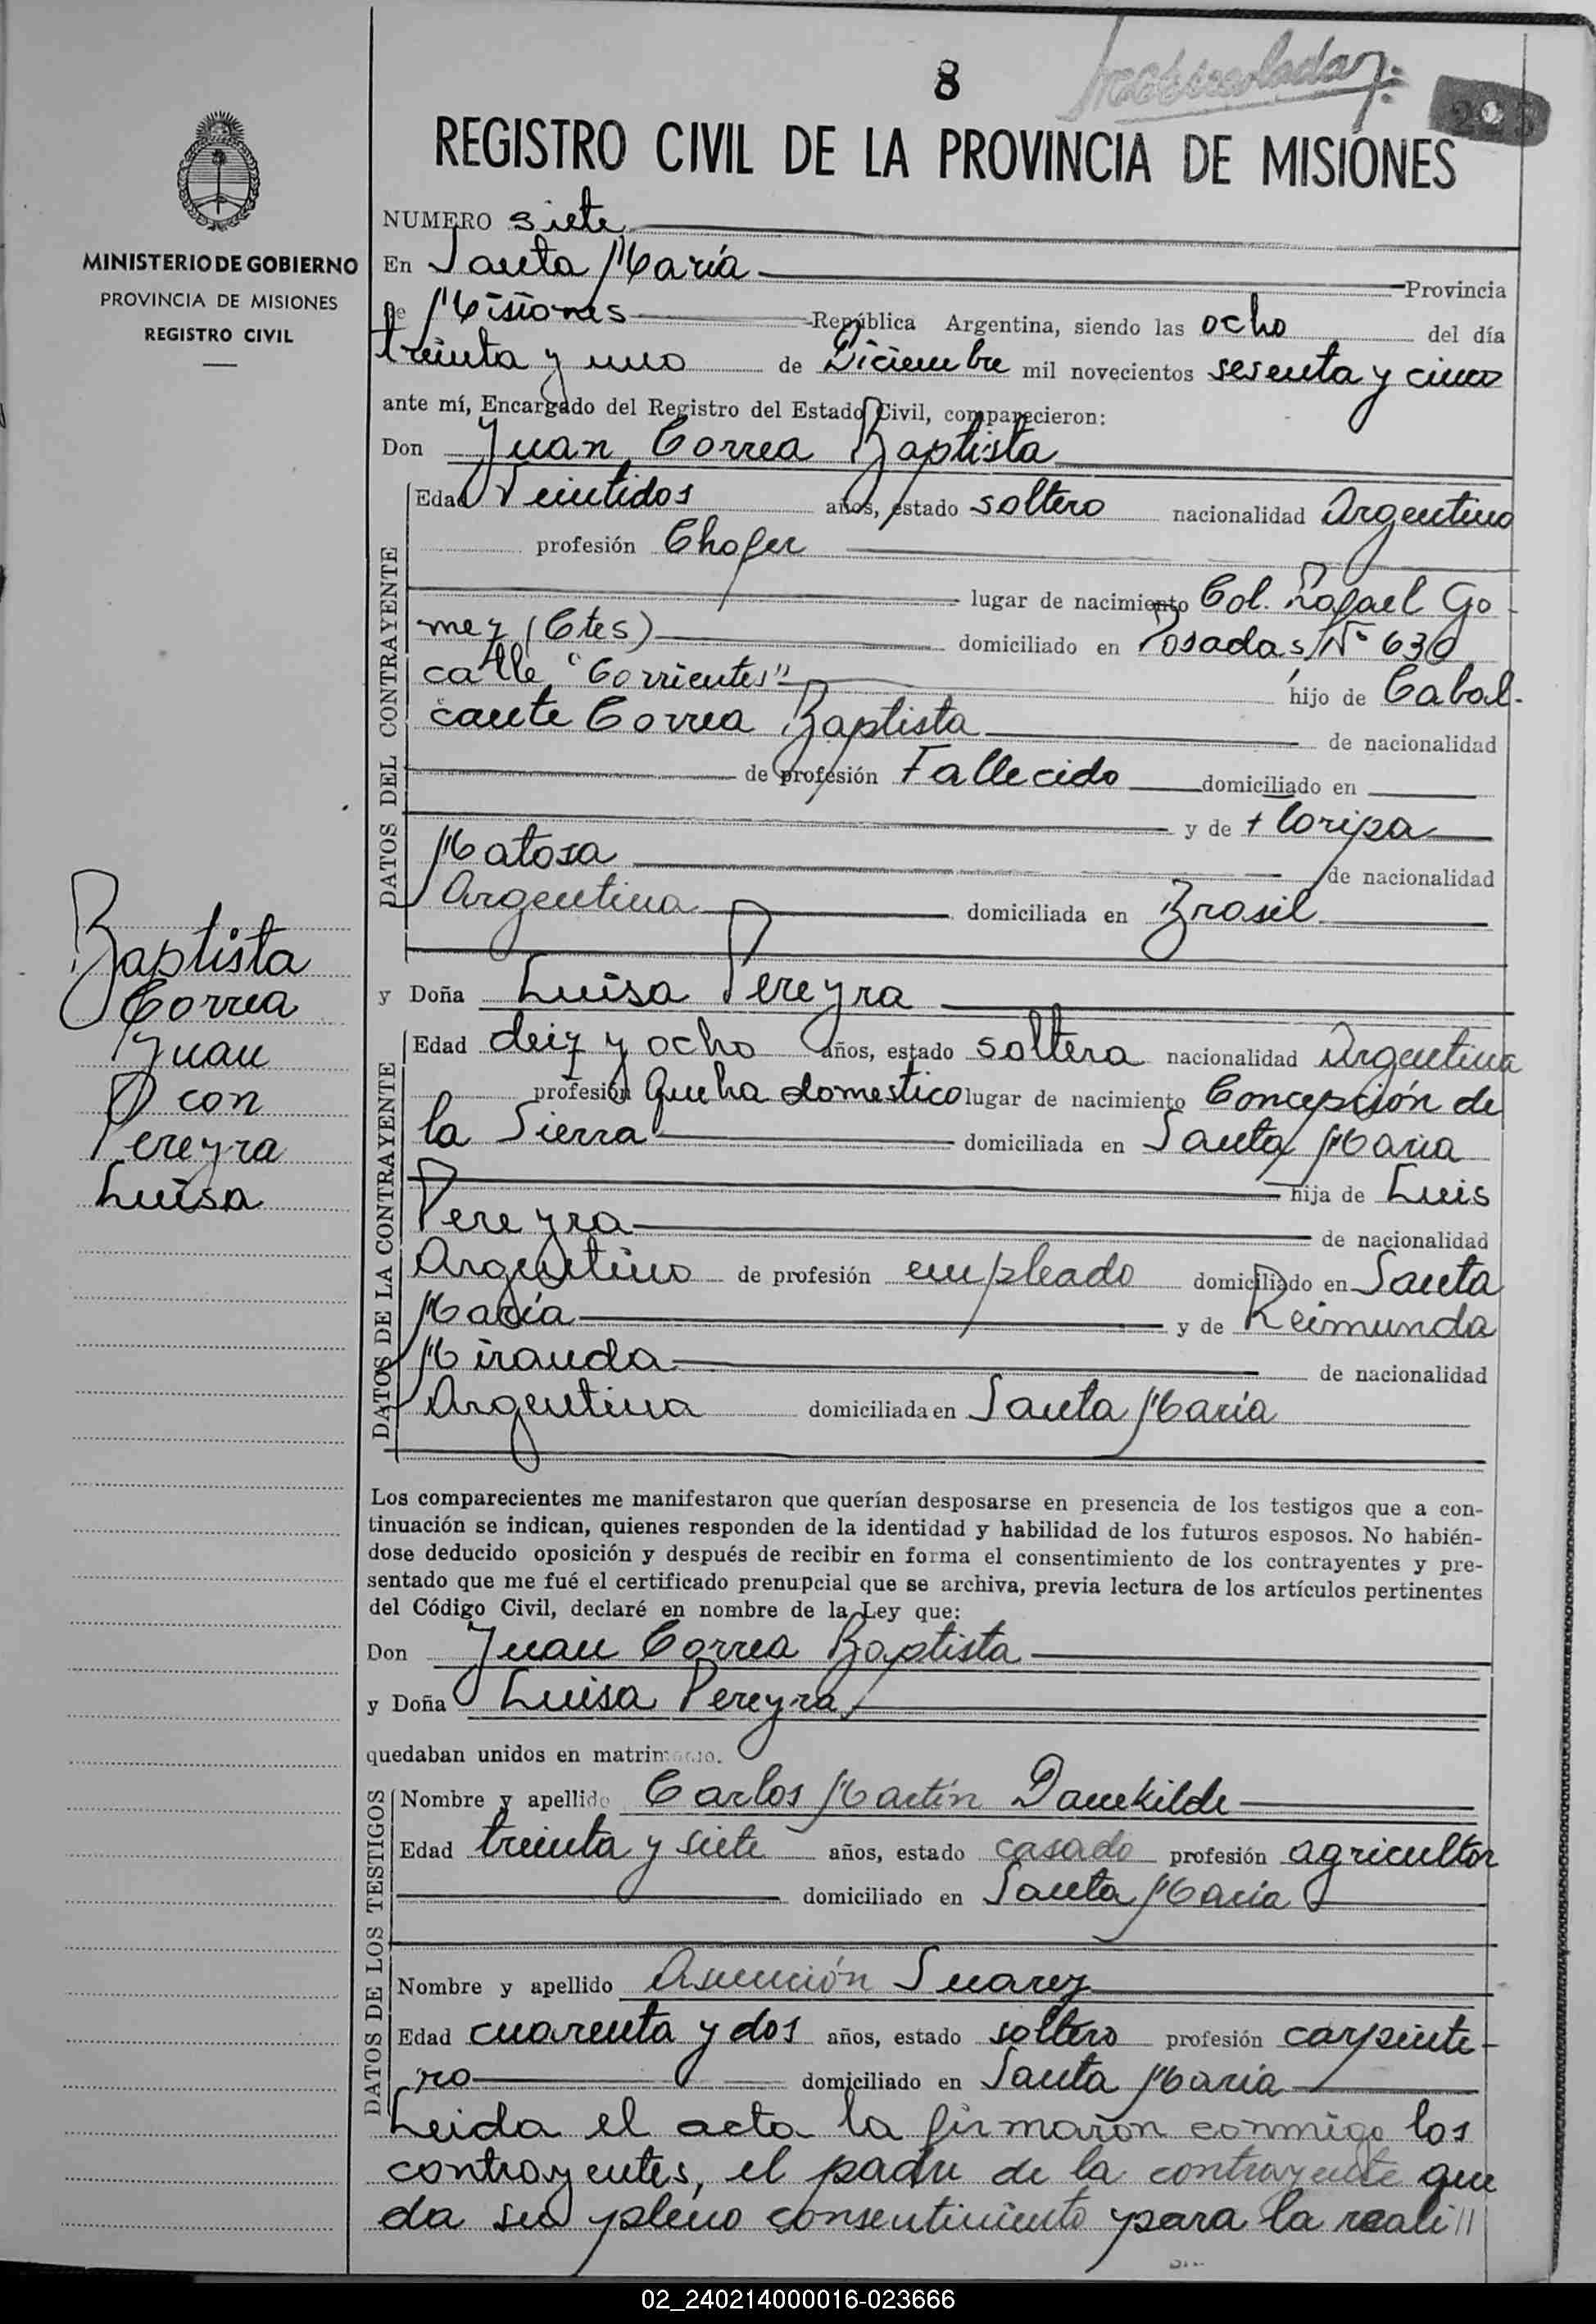 8
225
REGISTRO CIVIL DE LA PROVINCIA DE MISIONES
MINISTERIO DE GOBIERNO
PROVINCIA DE MISIONES
REGISTRO CIVIL
NUMERO siete
En Santa María Provincia
de Misiones República Argentina, siendo las ocho del día
treinta y uno de Diciembre mil novecientos sesenta y cinco
ante mí, Encargado del Registro del Estado Civil, comparecieron:
Don Juan Correa Baptista
DATOS DEL CONTRAYENTE
Edad Veintidos años, estado soltero nacionalidad Argentino
profesión Chofer
lugar de nacimiento Col. Rafael Go-
mez (Ctes) domiciliado en Posadas, N° 630
calle "Corrientes" hijo de Cabal-
cante Correa Baptista de nacionalidad
de profesión Fallecido domiciliado en
y de Floripa
Matosa de nacionalidad
Argentina domiciliada en Brasil
Baptista
Correa
Juan
con
Pereyra
Luisa
y Doña Luisa Pereyra
DATOS DE LA CONTRAYENTE
Edad deiz y ocho años, estado soltera nacionalidad Argentina
profesión Queha domestico lugar de nacimiento Concepción de
la Sierra domiciliada en Santa Maria
hija de Luis
Pereyra de nacionalidad
Argentino de profesión empleado domiciliado en Santa
María y de Reimunda
Miranda de nacionalidad
Argentina domiciliada en Santa María
Los comparecientes me manifestaron que querían desposarse en presencia de los testigos que a con-
tinuación se indican, quienes responden de la identidad y habilidad de los futuros esposos. No habién-
dose deducido oposición y después de recibir en forma el consentimiento de los contrayentes y pre-
sentado que me fué el certificado prenupcial que se archiva, previa lectura de los artículos pertinentes
del Código Civil, declaré en nombre de la Ley que:
Don Juan Correa Baptista
y Doña Luisa Pereyra
quedaban unidos en matrimonio.
DATOS DE LOS TESTIGOS
Nombre y apellido Carlos Martín Danekilde
Edad treinta y siete años, estado casado profesión agricultor
domiciliado en Santa María
Nombre y apellido Asunción Suarez
Edad cuarenta y dos años, estado soltero profesión carpinte-
ro domiciliado en Santa Maria
Leida el acta la firmaron conmigo los
contrayentes, el padre de la contrayente que
da su pleno consentimiento para la reali//
02_240214000016-023666